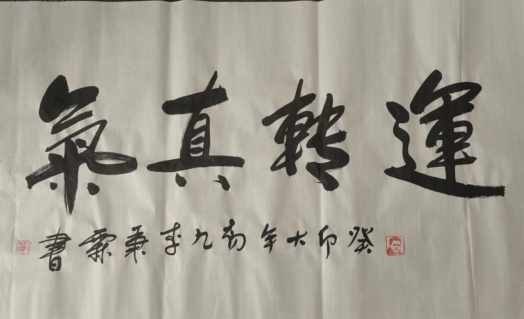 運轉真氣
癸卯大年初九李秉霖書